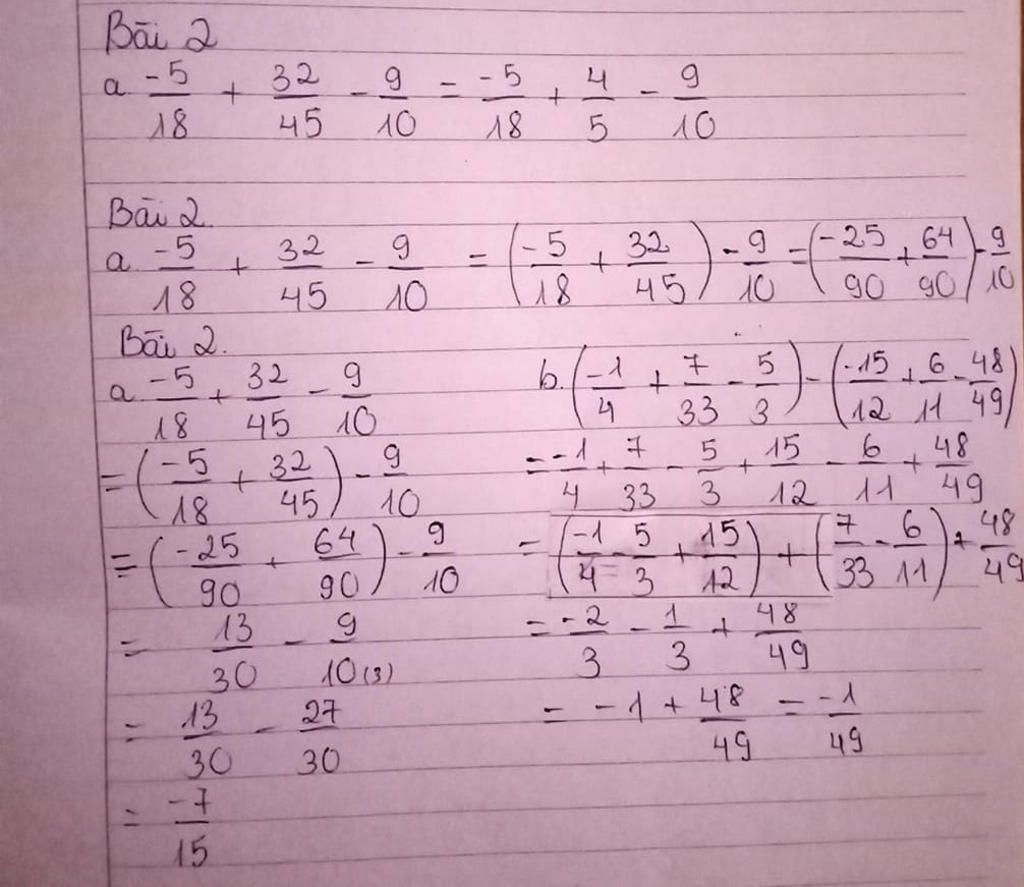 Bài 2
a. -5/18 + 32/45 - 9/10 = -5/18 + 4/5 - 9/10
Bài 2.
a. -5/18 + 32/45 - 9/10 = (-5/18 + 32/45) - 9/10 = (-25/90 + 64/90) - 9/10
Bài 2.
a. -5/18 + 32/45 - 9/10
= (-5/18 + 32/45) - 9/10
= (-25/90 + 64/90) - 9/10
= 13/30 - 9/10(3)
= 13/30 - 27/30
= -7/15
b. (-1/4 + 7/33 - 5/3) - (-15/12 + 6/11 - 48/49)
= -1/4 + 7/33 - 5/3 + 15/12 - 6/11 + 48/49
= (-1/4 - 5/3 + 15/12) + (7/33 - 6/11) + 48/49
= -2/3 - 1/3 + 48/49
= -1 + 48/49 = -1/49